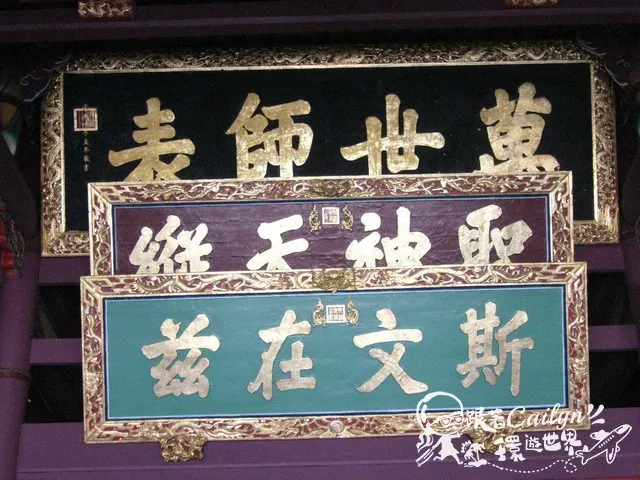 萬世師表
聖神天縱
斯文在茲
跟著Cailyn
環遊世界